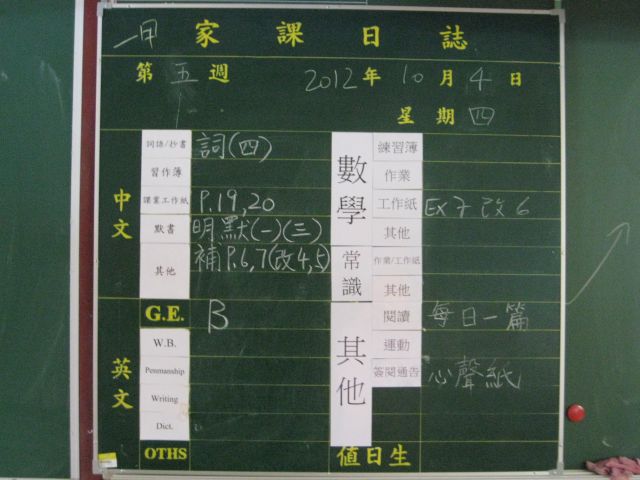 一甲 家課日誌
第五週 2012年10月4日
星期四
中文
詞語/抄書 詞(四)
習作簿
課業工作紙 P.19,20
默書 明默(一)(三)
其他 補P.6,7(改4,5)
G.E. B
英文
W.B.
Penmanship
Writing
Dict.
OTHS
數學
練習簿
作業
工作紙 Ex 7 改 6
其他
常識
作業/工作紙
其他
其他
閱讀 每日一篇
運動
簽閱通告 心聲紙
值日生